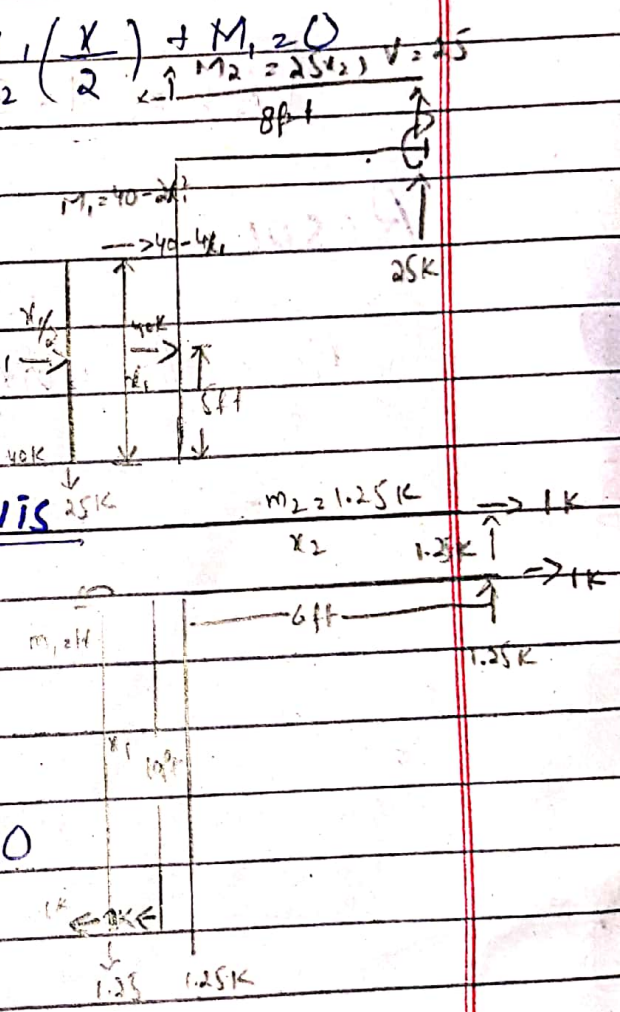 1(x/2) + M1 = 0
2
M2 = 25x2, V = 25
8ft
M1 = 40 - 2x1²
→ 40 - 4x1
25K
x1/2
40K
x1
5ft
40K
25K
m2 = 1.25K
→ 1K
x2
1.25K
→ 1K
6ft
1.25K
x1
1K
1.25
1.25K